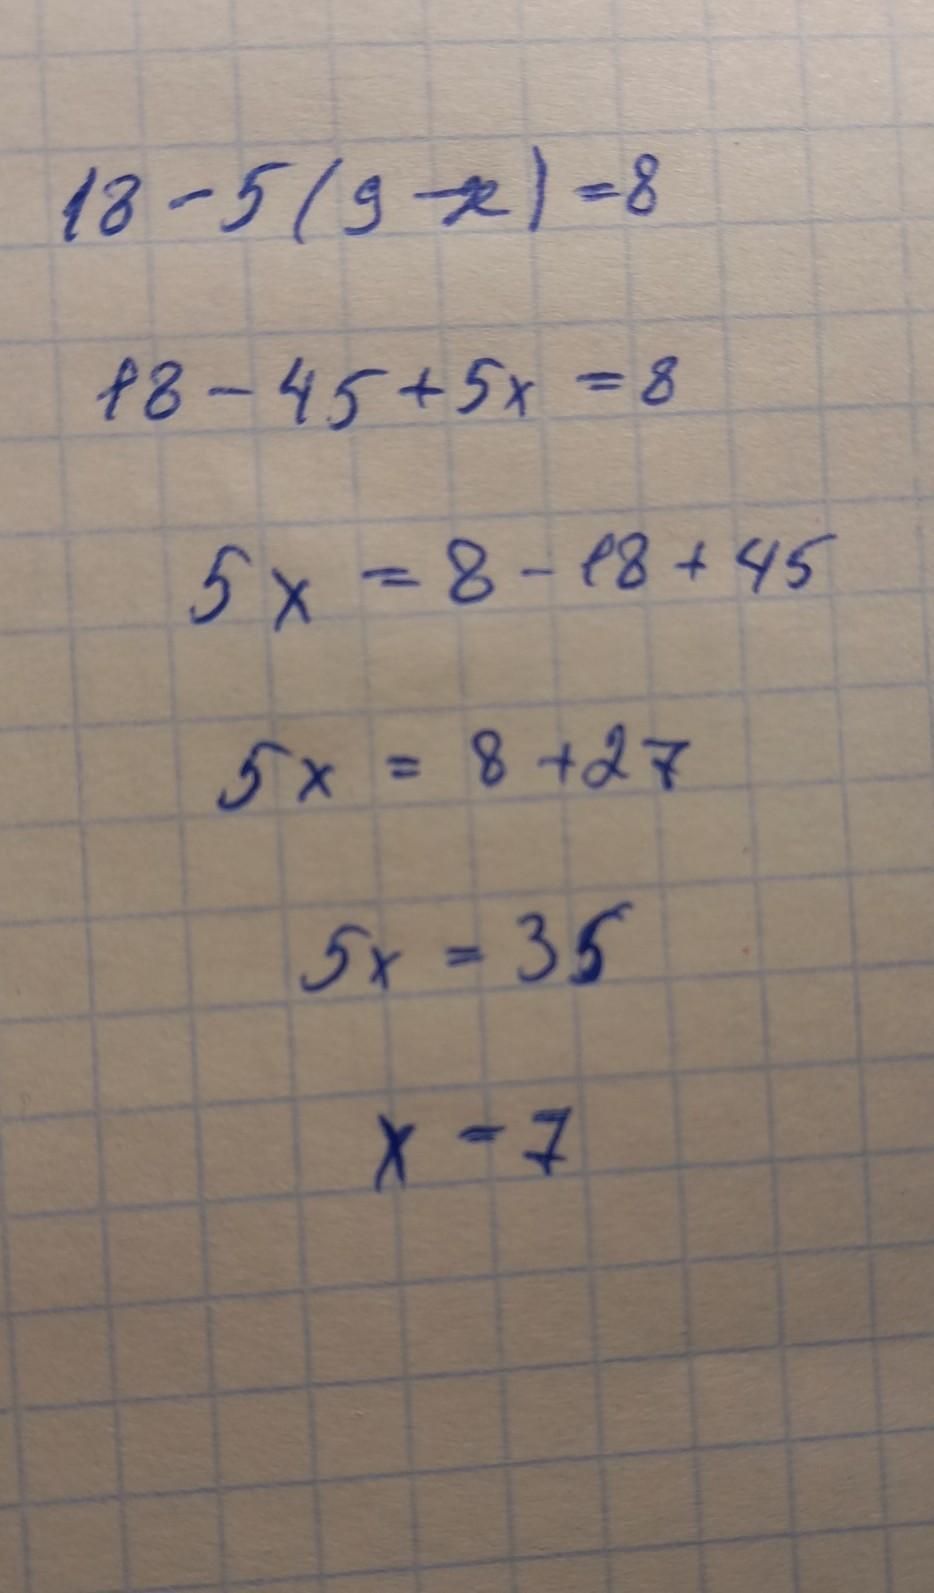 18 - 5 ( 9 - x ) = 8
18 - 45 + 5x = 8
5x = 8 - 18 + 45
5x = 8 + 27
5x = 35
x = 7